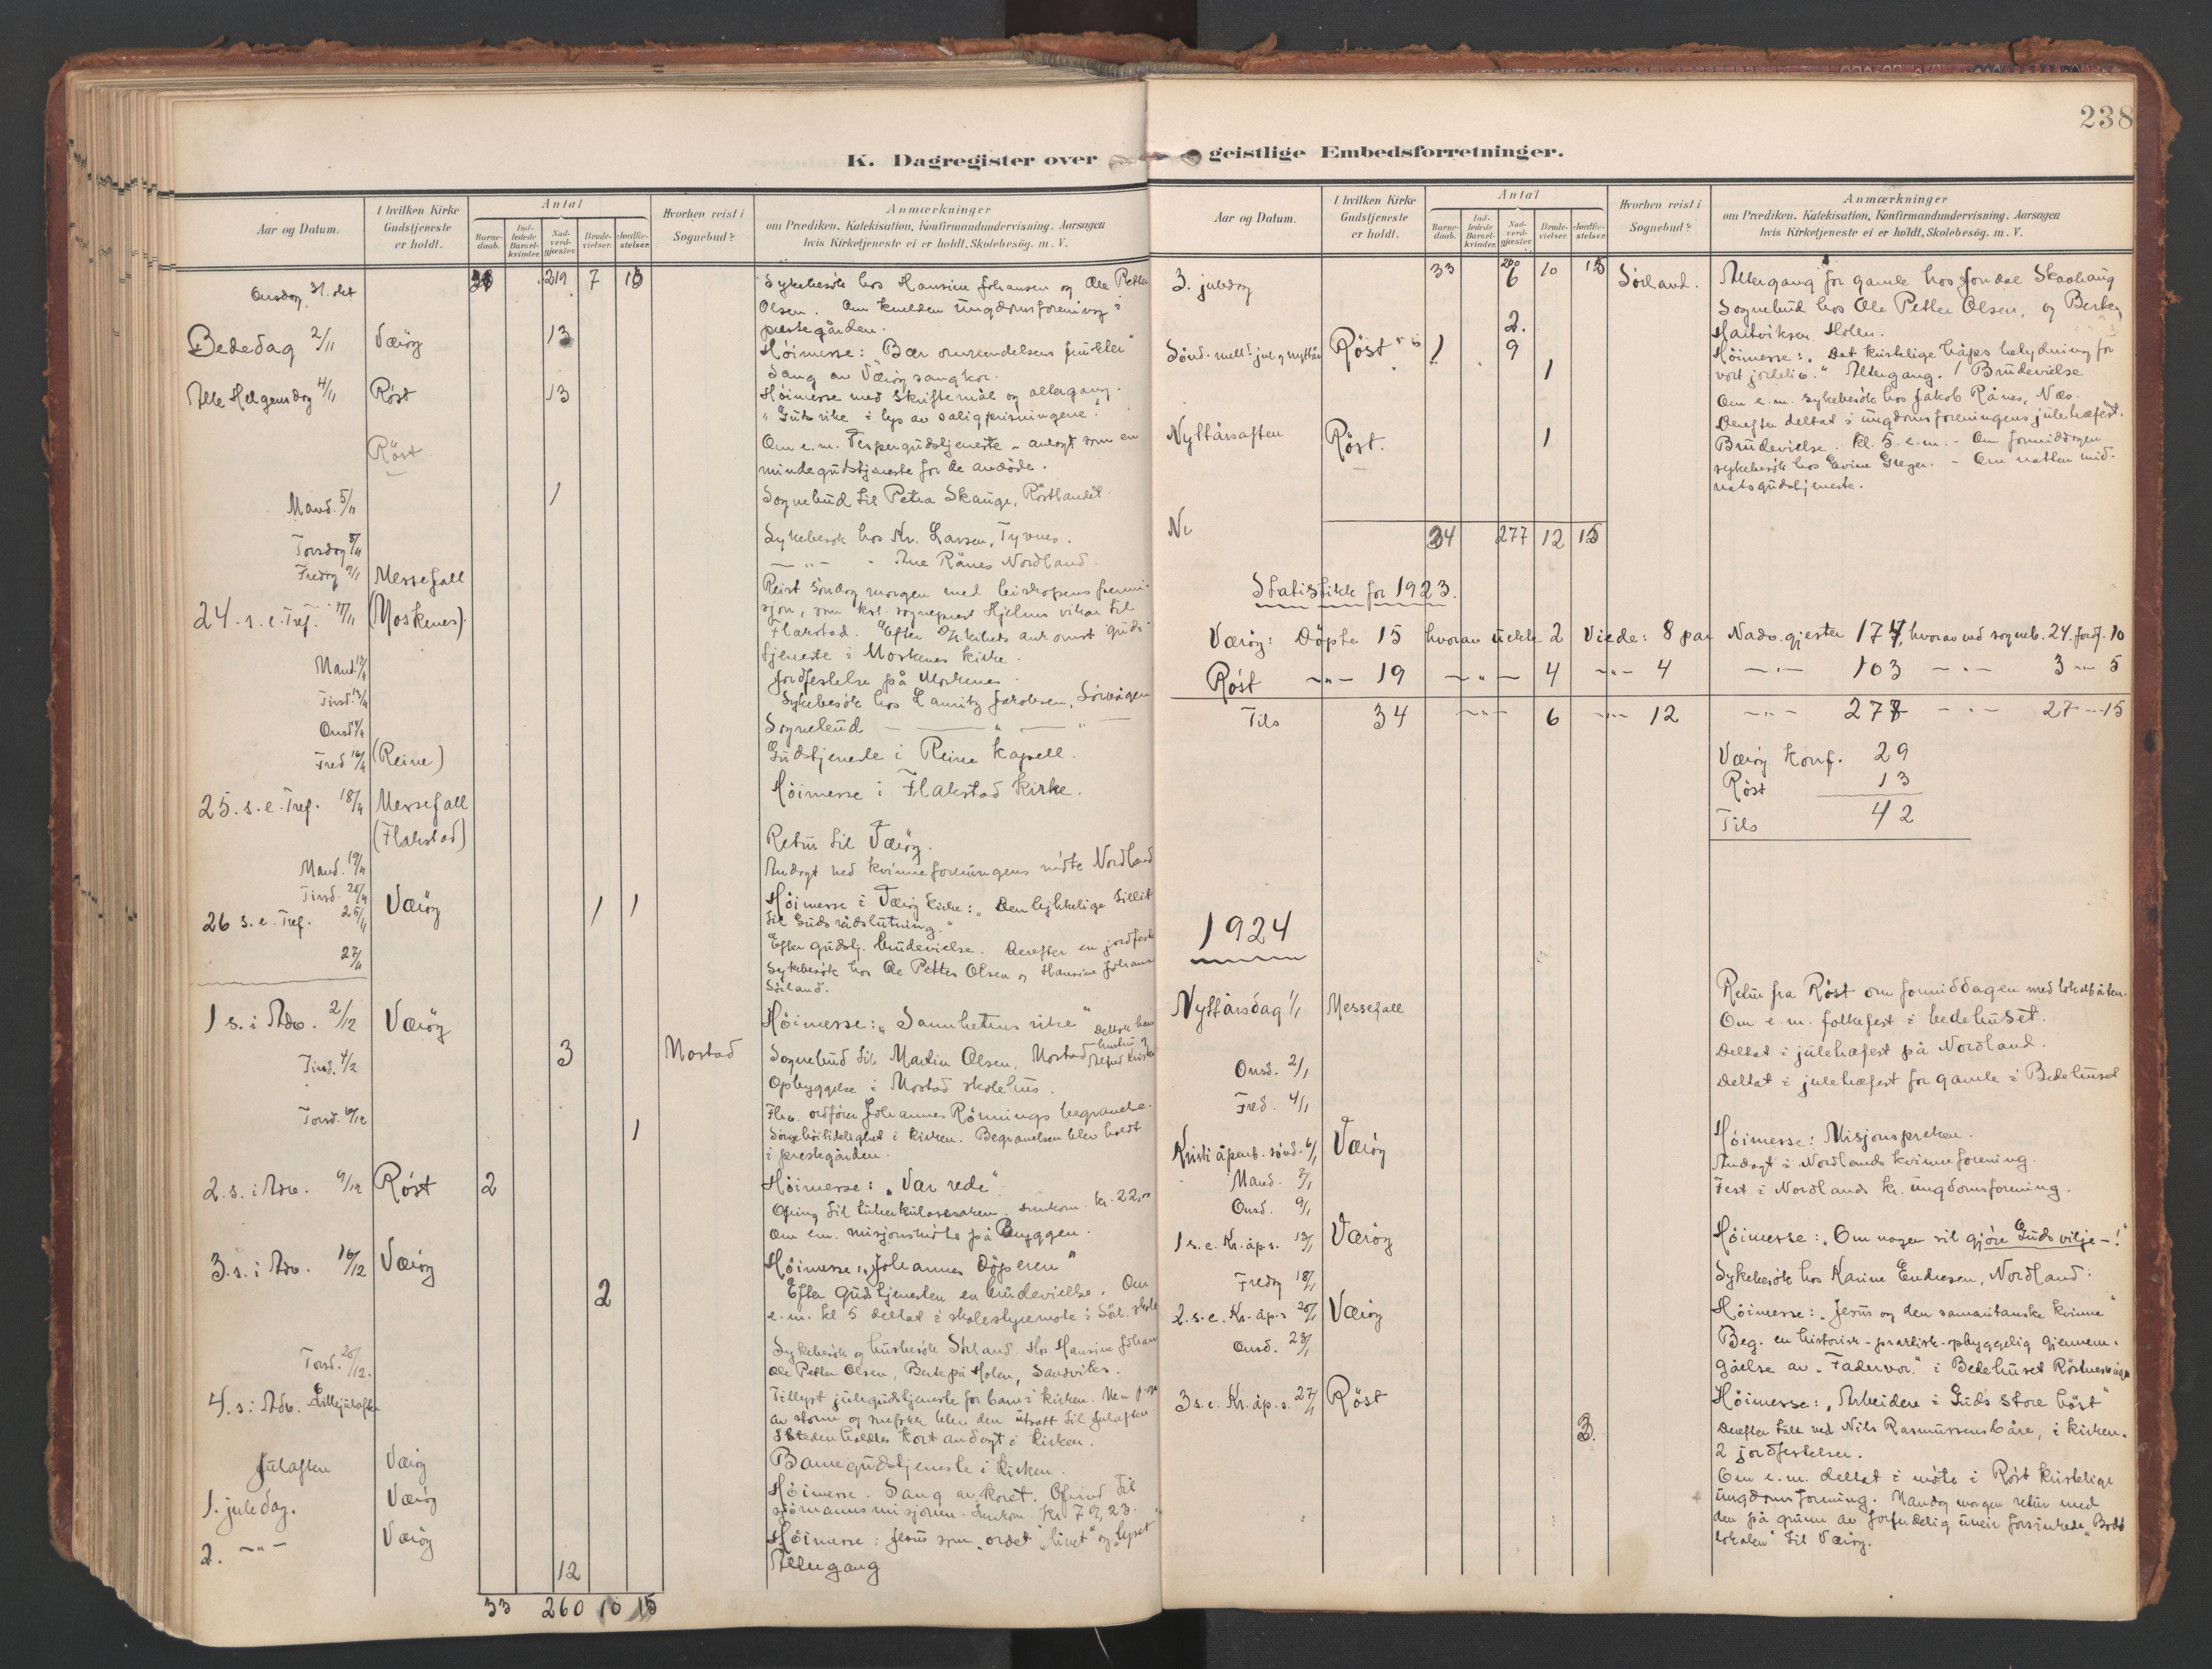 238
K. Dagregister over geistlige Embedsforretninger.
Aar og Datum.
I hvilken Kirke Gudstjeneste er holdt.
Antal
Barne-daab.
Ind-ledede Barsel-kvinder.
Nad-verd-gjester.
Brude-vielser.
Jordfæ-stelser.
Hvorhen reist i Sognebud?
Anmærkninger
om Prædiken, Katekisation, Konfirmandundervisning. Aarsagen
hvis Kirketjeneste ei er holdt, Skolebesög. m. V.
Onsdag 31. okt 31 219 7 13 Sykebesök hos Hansine Johansen og Ole Petter
Olsen. Om kvelden ungdomsforening i
prestegården.
Bededag 2/11 Værög 13 Höimesse: "Bær omvendelsens frukter"
Sang av Værög sangkor.
Alle Helgensdag 4/11 Röst 13 Höimesse med skriftemål og altergang.
"Guds rike i lys av saligprisningene."
Röst Om e.m. Vespergudstjeneste - anlagt som en
mindegudstjeneste for de avdöde.
Mand. 5/11 1 Sognebud til Petra Skauge, Röstlandet.
Torsdag 8/11 Sykebesök hos Kr. Larsen, Tyvnes.
Fredag 9/11 — " — Ane Rånes Nordland.
24. s. e. Tref. 11/11 Messefall
(Moskenes).
Reist söndag morgen med biskopens permi-
sjon, som kst. sogneprest Hjelms vikar til
Flakstad. Efter D/s kibets ankomst guds-
tjeneste i Moskenes kirke.
Mand. 12/11 Jordfestelse på Moskenes.
Tirsd. 13/11 Sykebesök hos Lauritz Jakobsen, Sörvågen
Onsd 14/11 Sognebud — " — " —
Fred 16/11 (Reine) Gudstjeneste i Reine kapell.
25. s. e. Tref. 18/11 Messefall
(Flakstad)
Höimesse i Flakstad kirke.
Mand. 19/11 Retur til Værög.
Tirsd. 20/11 Andagt ved kvinneforeningens möte Nordland
26 s. e. Tref. 25/11 Værög 1 1 Höimesse i Værög kirke: "Den lykkelige tillit
til Guds rådslutning."
Efter gudstj. brudevielse. Derefter en jordfeste
27/11 Sykebesök hos Ole Petter Olsen og Hansine Johans
Sörland.
1 s. i Adv. 2/12 Værög Höimesse: "Sannhetens rike"
Tirsd. 4/12 3 Mostad Sognebud til Martin Olsen, Mostad
Opbyggelse i Mostad skolehus.
Torsd. 6/12 1 Fhv. ordförer Johannes Rönnings begravelse.
Sörgehöitidelighet i kirken. Begravelsen blev holdt
i prestegården.
2. s. i Adv. 9/12 Röst 2 Höimesse: "Vær rede"
Ofring til tuberkulosesaken. Innkom kr. 22,00
Om em. misjonsmöte på Bryggen.
3. s. i Adv. 16/12 Værög 2 Höimesse: "Johannes Döperen"
Efter Gudstjenesten en brudevielse. Om
e. m. kl 5 deltat i skolestyremöte i Sörl. skole
Torsd. 20/12. Sykebesök og husbesök Sörland. Hos Hansine Johan
Ole Petter Olsen, Berte på Holen, Sandviks.
4. s. i Adv. Lillejulaften Tillyst julegudstjeneste for barn i kirken. Men p.gr.
av storm og snefokk blev den utsatt til Julaften.
Isteden holdtes kort andagt i kirken.
Julaften Værög Barnegudstjeneste i kirken.
1. juledag. Værög Höimesse. Sang av koret. Ofring til
sjömannsmisjonen. Innkom. Kr 79,23.
2. — " — Værög 12 Höimesse: Jesus som "ordet" "livet" og "lyset"
Altergang
33 260 10 15
3. juledag 33 260 6 10 15 Sörland. Altergang for gamle hos Jordal Skaahaug
2. Sognebud hos Ole Petter Olsen, og Berte
Hartviksen Holen.
Sönd. mell. jul og nyttår Röst 1 9 Höimesse: "Det kristelige håps betydning for
vort jordeliv." Altergang. 1 Brudevielse
1 Om e. m. sykebesök hos Jakob Rånes, Næs.
Derefter deltat i ungdomsforeningens juletræfest.
Nyttårsaften Röst. 1 Brudevielse. Kl. 5. e. m. - Om formiddagen
sykebesök hos Evine Greger. - Om natten mid-
natsgudstjeneste.
34 277 12 15
Statistikk for 1923.
Værög: Döpte 15 hvorav uekte 2 Viede: 8 par Nadv. gjester 174, hvorav ved sogneb. 24. jordf. 10
Röst — " — 19 — " — 4 — " — 4 — " — 103 — " — 3 — " — 5
Tils 34 — " — 6 — " — 12 — " — 277 — " — 27 — " — 15
Værög Konf. 29
Röst 13
Tils 42
1924
Nyttårsdag 1/1 Messefall Retur fra Röst om formiddagen med lokalbåten.
Om e. m. folkefest i bedehuset.
Onsd. 2/1 Deltat i juletræfest på Nordland.
Fred. 4/1 Deltat i juletræfest for gamle i Bedehuset
Kristi åpenb. sönd. 6/1 Værög Höimesse: Misjonspreken.
Mand. 7/1 Andagt i Nordlands kvinneforening.
Onsd. 9/1 Fest i Nordlands kr. ungdomsforening.
1 s. e. Kr. åp. s. 13/1 Værög Höimesse: "Om nogen vil gjöre Guds vilje -!"
Fredag 18/1 Sykebesök hos Karine Endresen, Nordland.
2. s. e. Kr. åp. s 20/1 Værög Höimesse: "Jesus og den samaritanske kvinne"
Onsd. 23/1 Beg. en historisk-praktisk-opbyggelig gjennem-
gåelse av "Fadervor" i Bedehuset Röstnesvåge
3 s. e. Kr. åp. s. 27/1 Röst Höimesse: "Arbeidere i Guds store höst"
2. Derefter talt ved Nils Rasmussens båre, i kirken.
2 jordfestelser.
Om e. m. deltat i möte i Röst kristelige
ungdomsforening. Mandag morgen retur med
den på grunn av forferdelig uveir forsinkede "Bodö
lokalen" til Værög.